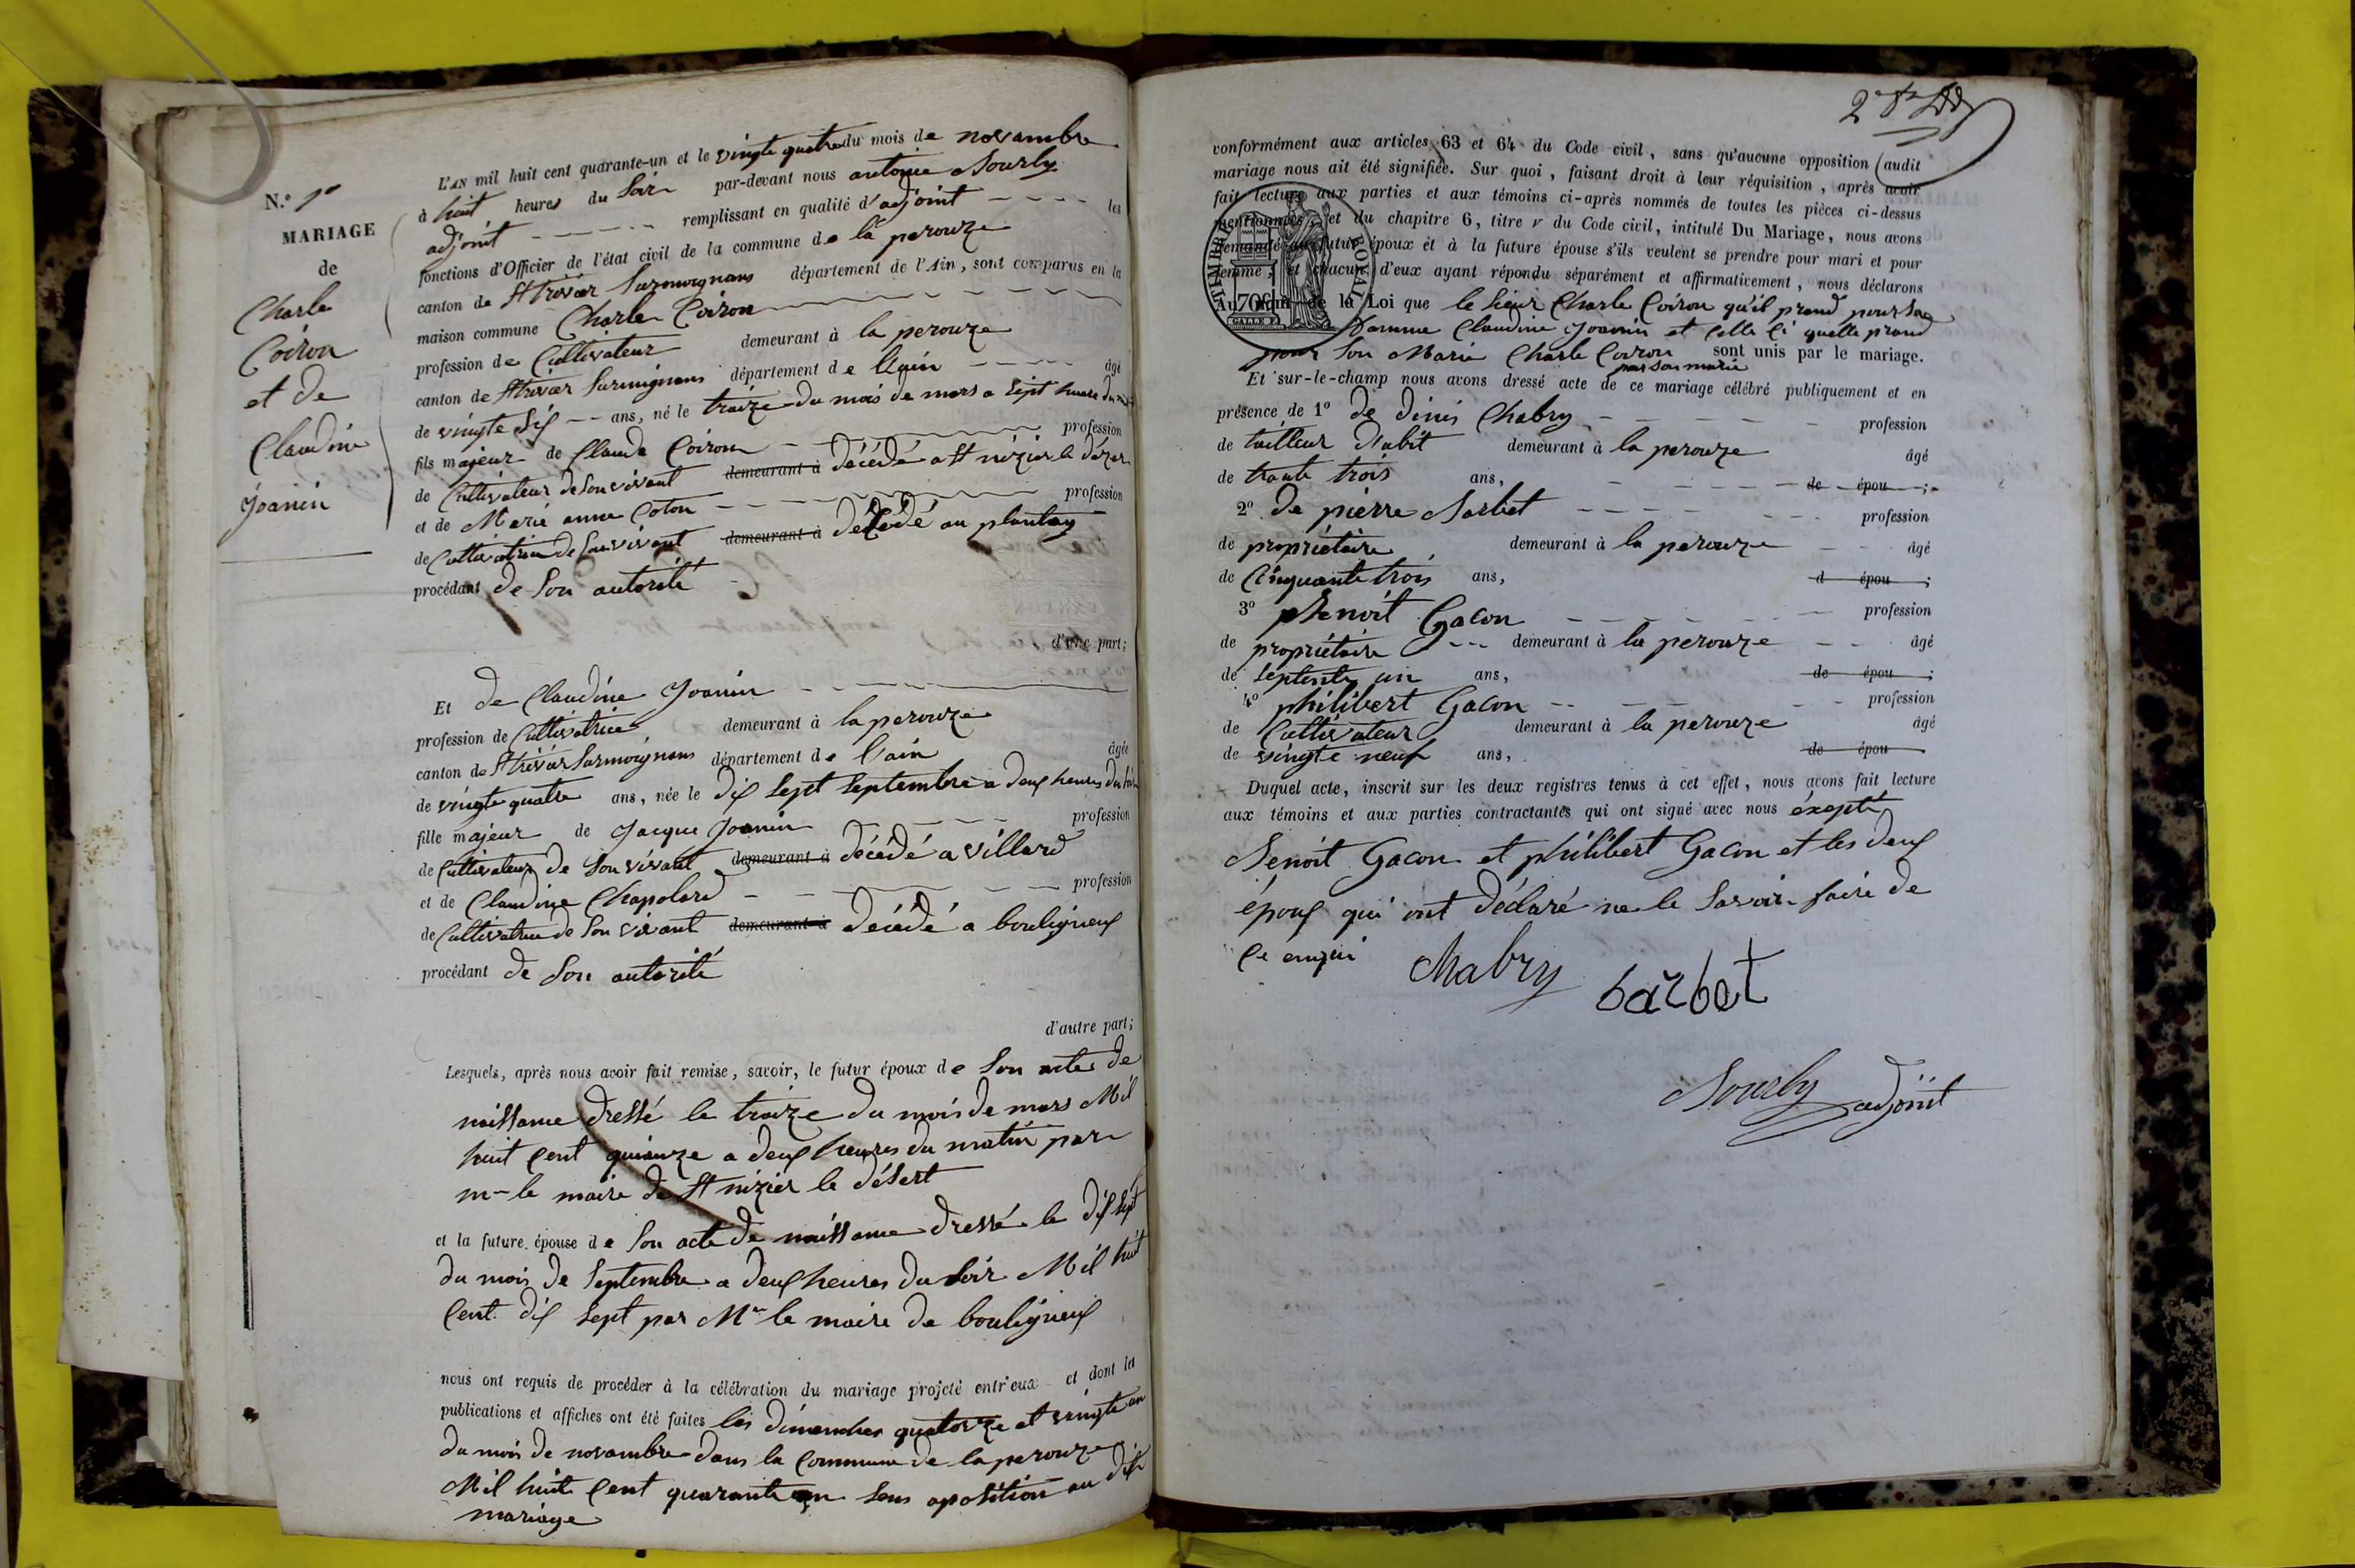 N.º 1er
MARIAGE
de
Charle
Coiron
et de
Claudine
Joanin
L'AN mil huit cent quarante-un et le vingte quatre du mois de novambre
à huit heures du Soir par-devant nous antoine Sourly
adjoint remplissant en qualité d'adjoint les
fonctions d'Officier de l'état civil de la commune de la perouze
canton de St trivier Surmoignans département de l'Ain, sont comparus en la
maison commune Charle Coiron
profession de Cultivateur demeurant à la perouze
canton de St trivier Surmoignans département de l'ain âgé
de vingte Six ans, né le traize du mois de mars a Sept heure du
fils majeur de Claude Coiron profession
de Cultivateur de Son vivant demeurant à décédé a St nizier le dézer
et de Marie anne Coton profession
de Cultivatrice de Son vivant demeurant à décédé au plantay
procédant de Son autorité
d'une part;
Et de Claudine Joanin
profession de Cultivatrice demeurant à la perouze
canton de St trivier Surmoignans département de l'ain âgée
de vingte quatre ans, née le dix Sept Septembre a deux heures du Soir
fille majeur de Jacque Joanin profession
de Cultivateur de Son vivant demeurant à décédé a villard
et de Claudine Chapolard profession
de Cultivatrice de Son vivant demeurant à décédé a bouligneux
procédant de Son autorité
d'autre part;
Lesquels, après nous avoir fait remise, savoir, le futur époux de Son acte de
naissance dressé le traize du mois de mars Mil
huit Cent quinze a deux heures du matin par
mr le maire de St nizier le désert
et la future épouse de Son acte de naissance dressé le dix Sept
du mois de Septembre a deux heures du Soir Mil huit
Cent dix Sept par Mr le maire de bouligneux
nous ont requis de procéder à la célébration du mariage projeté entr'eux et dont les
publications et affiches ont été faites les dimanches quatorze et vingte un
du mois de novambre dans la Commune de la perouze
Mil huit Cent quarante un Sans oposition au dit
mariage
conformément aux articles 63 et 64 du Code civil, sans qu'aucune opposition audit
mariage nous ait été signifiée. Sur quoi, faisant droit à leur réquisition, après avoir
fait lecture aux parties et aux témoins ci-après nommés de toutes les pièces ci-dessus
mentionnées, et du chapitre 6, titre V du Code civil, intitulé Du Mariage, nous avons
demandé au futur époux et à la future épouse s'ils veulent se prendre pour mari et pour
femme; et chacun d'eux ayant répondu séparément et affirmativement, nous déclarons
Au nom de la Loi que le Sieur Charle Coiron qu'il prand pour Sa
famme Claudine Joanin et Celle Ci quelle prand
pour Son Marie Charle Coiron sont unis par le mariage.
par son marie
TIMBRE ROYAL
70c
Et sur-le-champ nous avons dressé acte de ce mariage célébré publiquement et en
présence de 1º de dinis Chabry profession
de tailleur d'abit demeurant à la perouze âgé
de trante trois ans, de épou ;
2º de pierre Barbet profession
de propriétaire demeurant à la perouze âgé
de Cinquante trois ans, d épou ;
3º Benoit Gacon profession
de propriétaire demeurant à la perouze âgé
de Septente un ans, de épou ;
4º philibert Gacon profession
de Cultivateur demeurant à la perouze âgé
de vingte neuf ans, de épou
Duquel acte, inscrit sur les deux registres tenus à cet effet, nous avons fait lecture
aux témoins et aux parties contractantes qui ont signé avec nous éxepté
Benoit Gacon et philibert Gacon et les deux
époux qui ont déclaré ne le Savoir faire de
Ce enquis
Chabry
barbet
Sourly adjoint